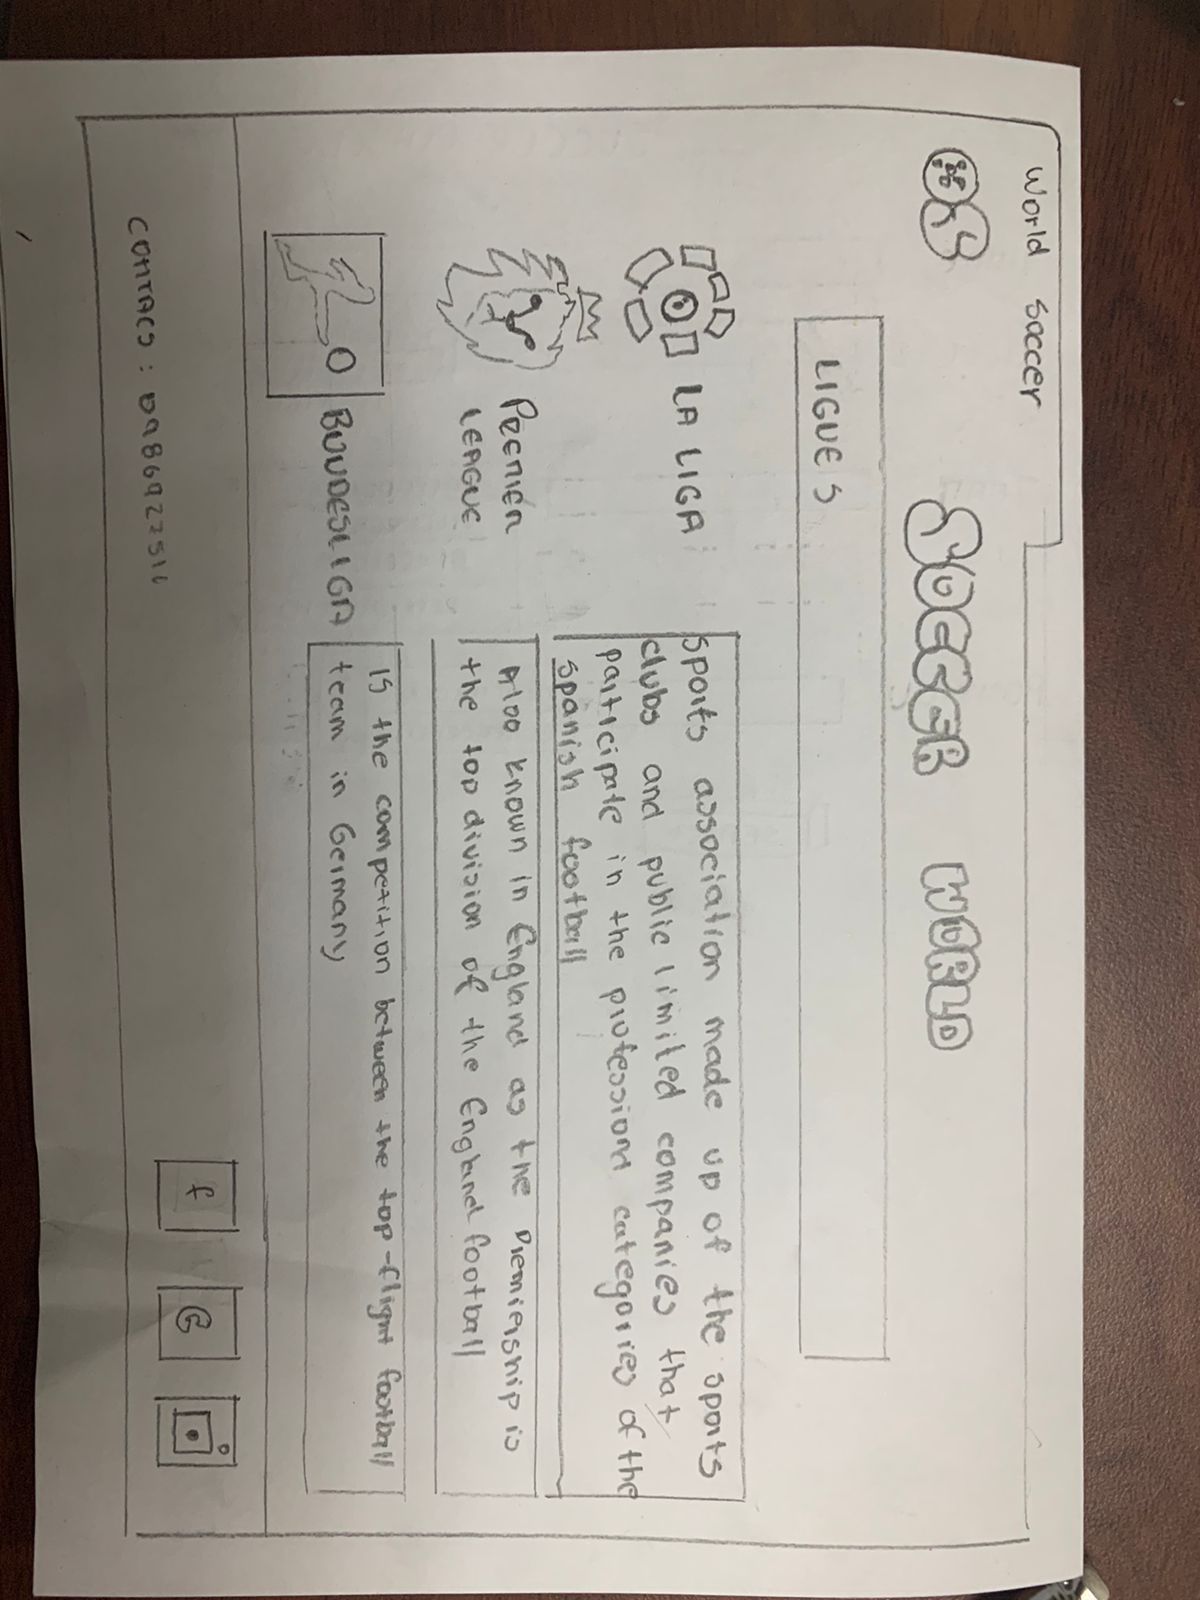 World Soccer
SOCCER WORLD
LIGUES
LA LIGA
sports association made up of the sports
clubs and public limited companies that
participate in the professional categories of the
spanish football
PREMIER
LEAGUE
Also known in England as the premiership is
the top division of the England football
BUNDESLIGA
is the competition between the top-flight football
team in Germany
CONTACS:
f